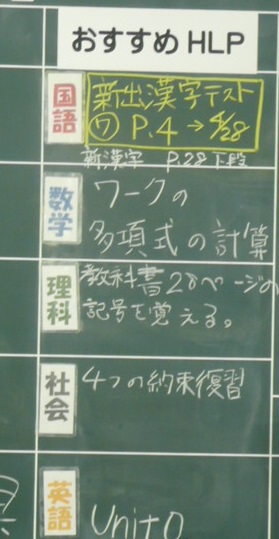 おすすめ HLP
国語
新出漢字テスト
⑦ P.4 → 4/28
新漢字 P.28 下段
数学
ワークの
多項式の計算
理科
教科書28ページの
記号を覚える。
社会
4つの約束復習
英語
Unit0